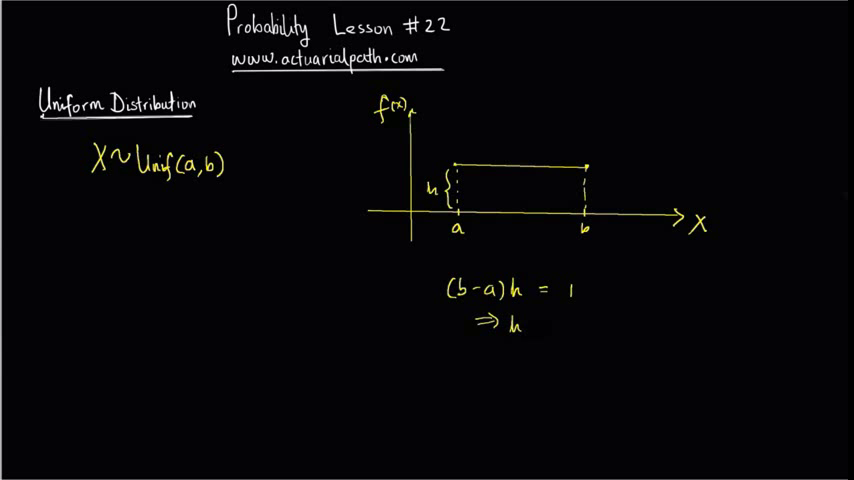 Probability Lesson #22
www.actuarialpath.com
Uniform Distribution
X~Unif(a,b)
f(x)
h
a b
X
(b-a)h = 1
⇒ h